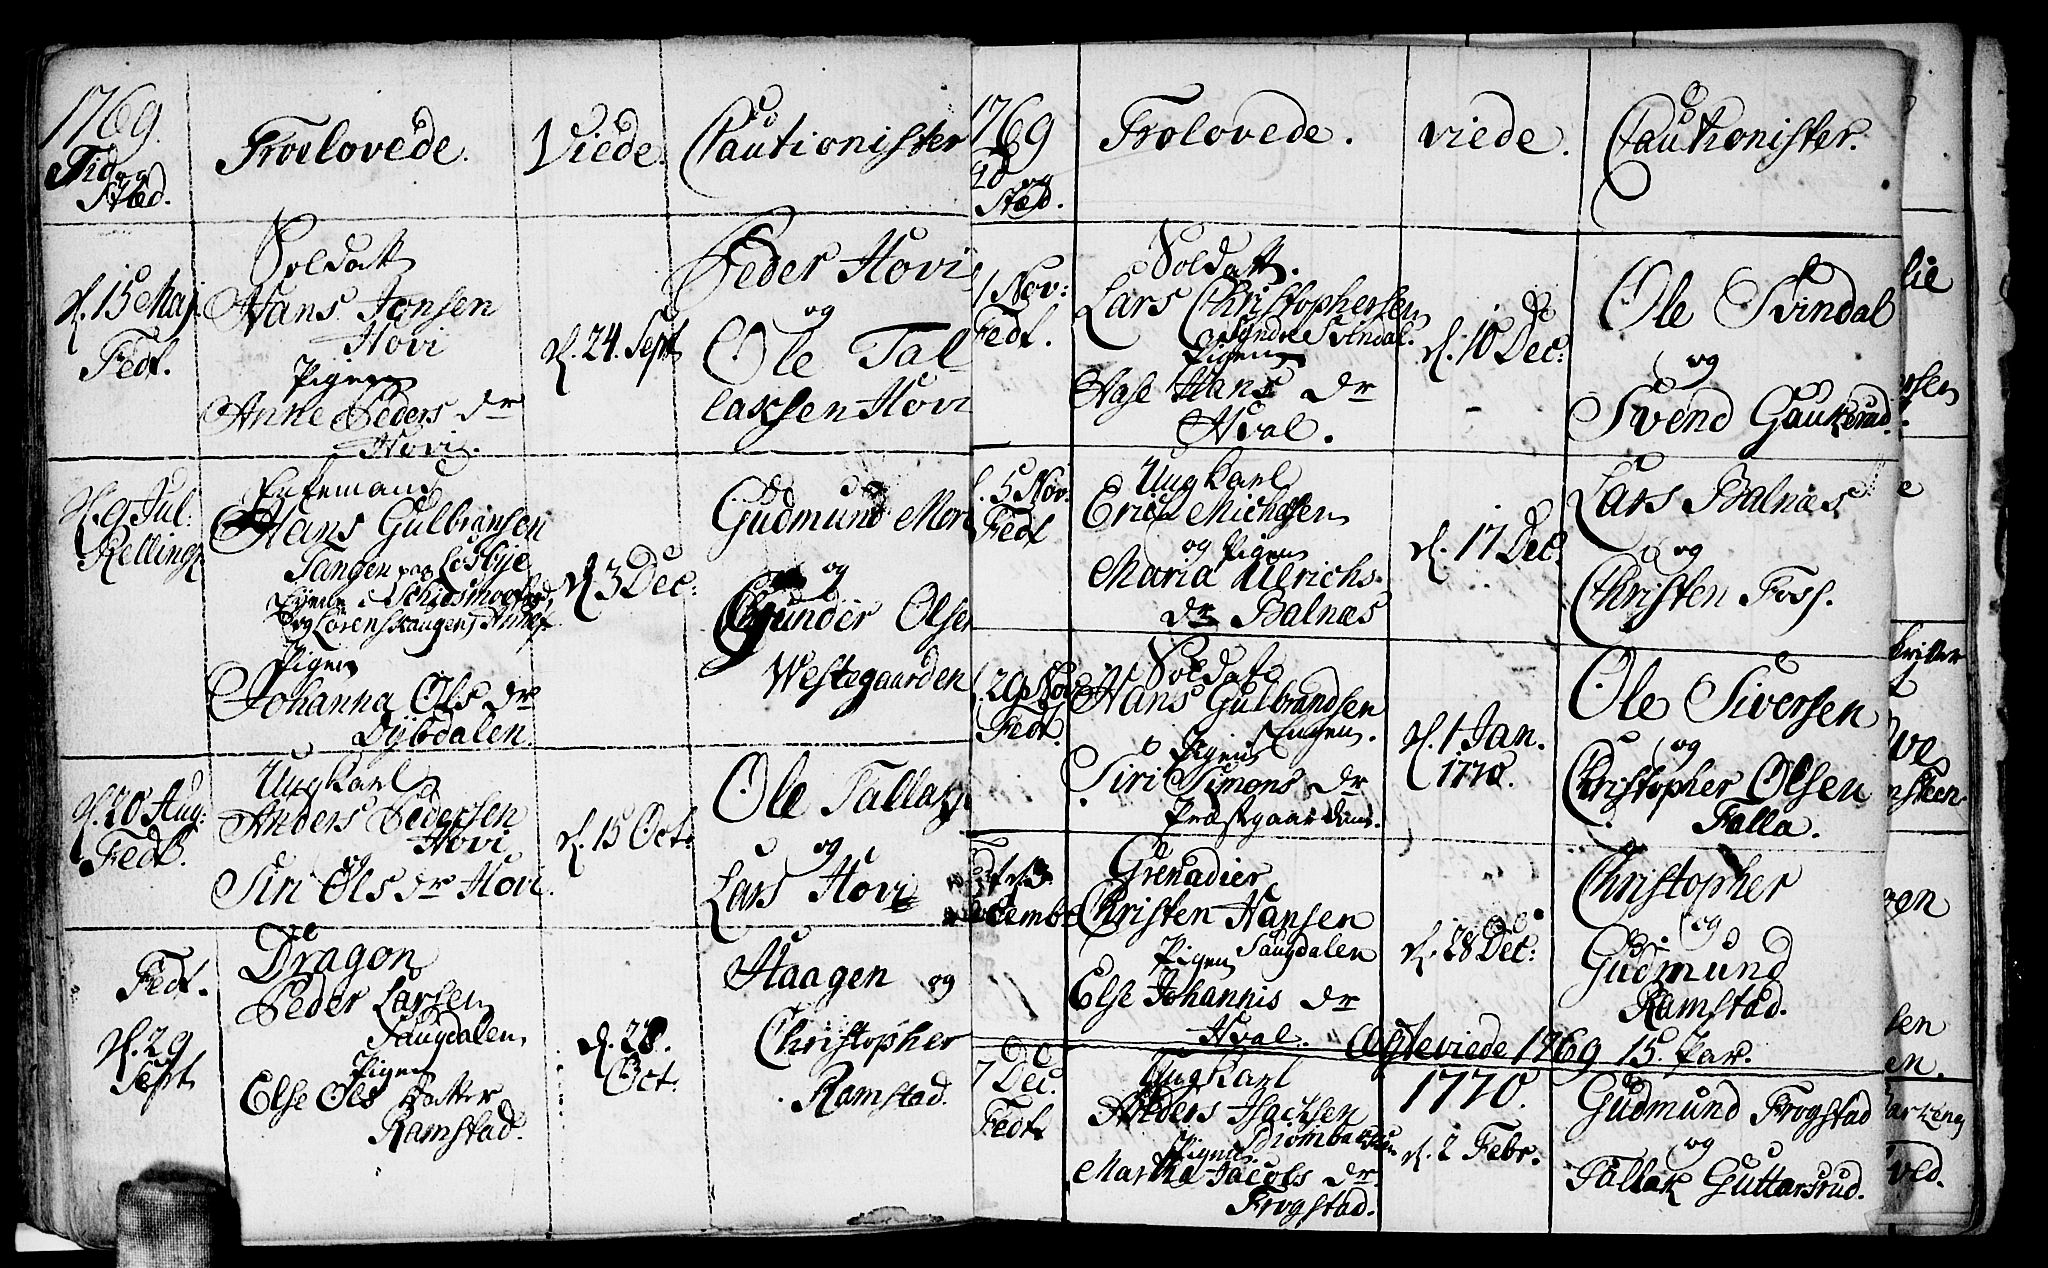 1769.
Tid og
Stæd.
Troelovede.
Viede.
Cautionister
d. 15 Maj.
Fedt.
Soldatt
Hans Jensen
Hovi
Pigen
Anne Peders dr
Hovi.
d. 24. Sept
Peder Hovi
og
Ole Tal-
laksen Hovi
d. 9 Jul:
Relling
Enkemand
Hans Gulbransen
Tangen paa Losbye
Eyede i Schidsmoe
og Lørenskaugens
Pigen
Johanna Ols dr
Dybdalen.
d. 3 Dec:
Gudmund Mor
og
Gunder Olsen
Westegaarden
d. 20 Aug:
Fedt.
Ungkarl
Anders Pedersen
Hovi
og
Siri Ols dr Hovi.
d. 15 Oct:
Ole Tallax
og
Lars Hovi
Fedt.
d. 29
Sept
Dragon
Peder Larsen
Saugdalen
Pigen
Else Ols Datter
Ramstad.
d. 28.
Oct.
Haagen og
Christopher
Ramstad.
1769
og
Stæd.
Trolovede.
viede.
Cautionister.
1 Nov:
Fedt.
Soldatt.
Lars Christophersen
Søndre Svendal.
Pigen
Aase Hans dr
Hval.
d. 10 Dec:
Ole Svindal
og
Svend Gaukerud.
d. 5 Nov:
Fedt
Ungkarl
Erich Michelsen
og Pigen
Maria Ulrichs
dr Balnæs
d. 17 Dec.
Lars Balnæs
og
Christen Foss.
29 Nov:
Fedt.
Soldatt
Hans Gulbrandsen
Engen.
Pigen
Siri Simons dr
Præstgaarden.
d. 1 Jan.
1770.
Ole Siversen
og
Christopher Olsen
Falla.
Grenadier
Christen Hansen
Saugdalen
Pigen
Else Johannis dr
Hval.
d. 28 Dec:
Christopher
og
Gudmund
Ramstad.
Ægteviede 1769 15. Par.
7 Dec.
Fedt
Ungkarl
Anders Isachsen
Pigen
Martha Jacobs dr
Frogstad.
1770.
d. 2 Febr.
Gudmund Frogstad
og
Tallak Guttarsrud.